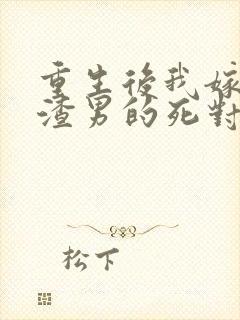 重生後我嫁
渣男的死對
松下